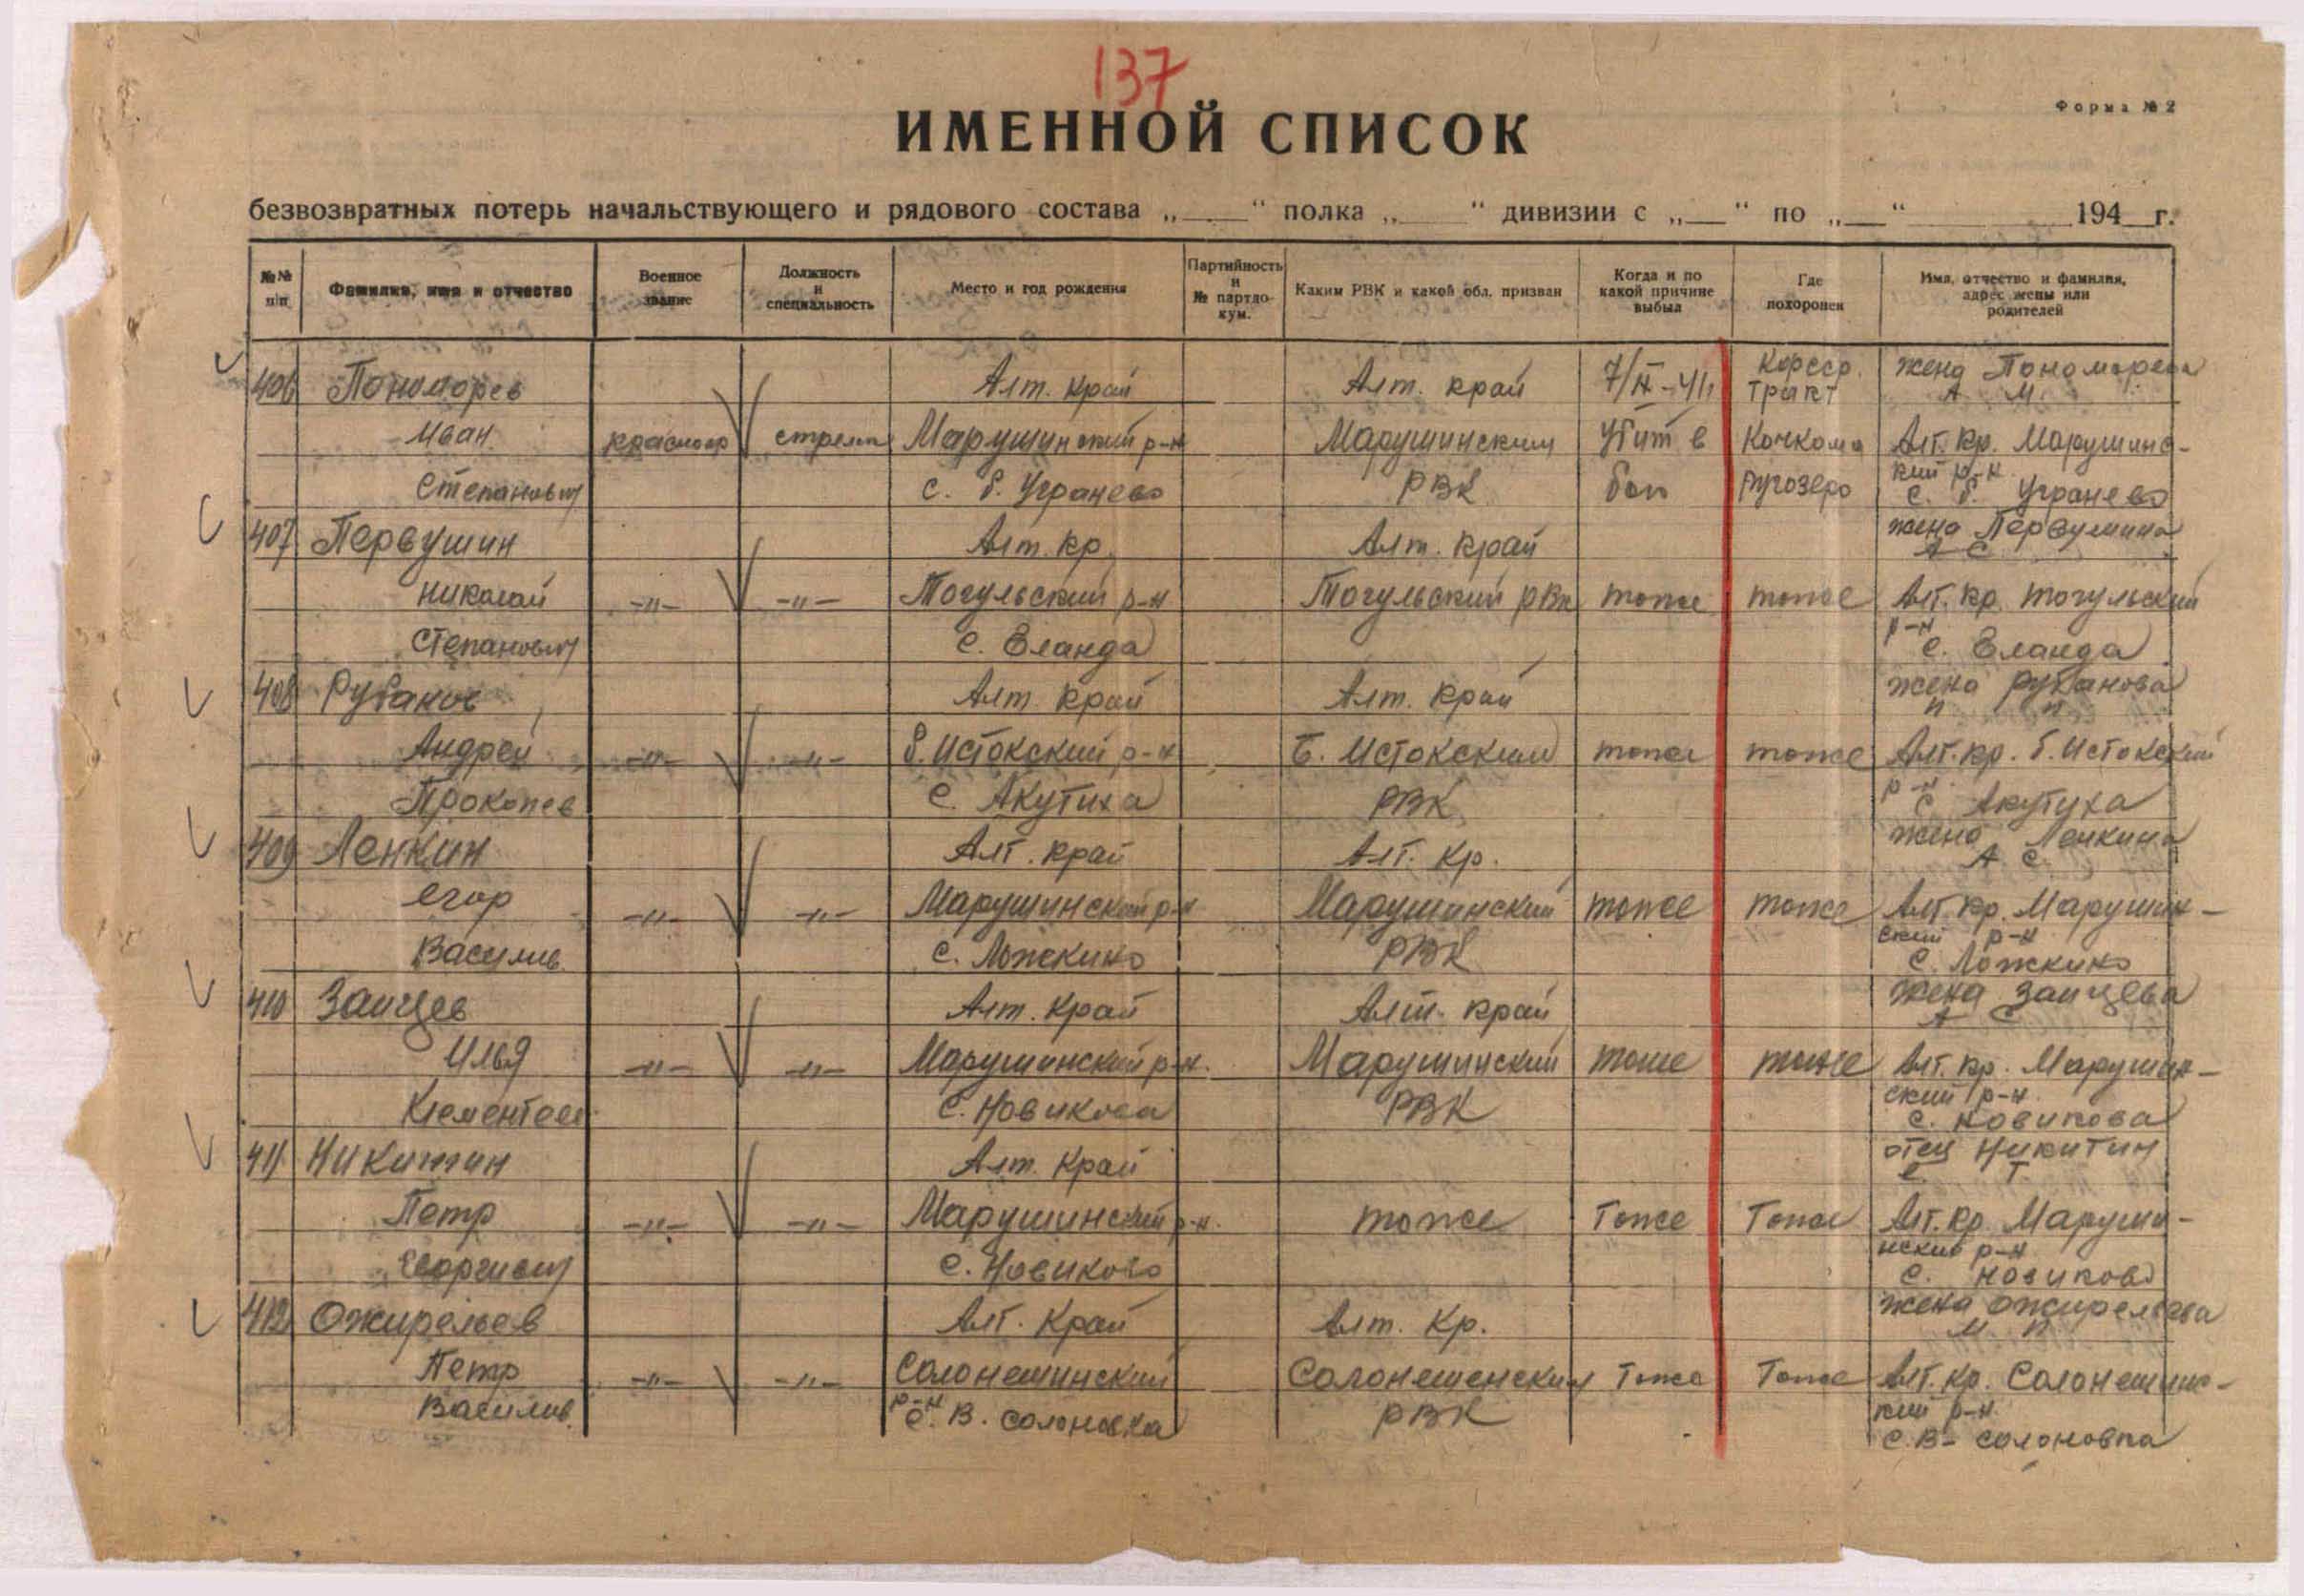 137
Форма № 2
ИМЕННОЙ СПИСОК
безвозвратных потерь начальствующего и рядового состава „____“ полка „____“ дивизии с „__“ по „__“ ________ 194__г.
№№ п/п
Фамилия, имя и отчество
Военное звание
Должность и специальность
Место и год рождения
Партийность и № партдокум.
Каким РВК и какой обл. призван
Когда и по какой причине выбыл
Где похоронен
Имя, отчество и фамилия, адрес жены или родителей
406 Пономорев Алт. край Алт. край Карсср. тракт жена Пономорева А. М.
Иван красноар стрелок Марушинский р-н Марушинским убит в Кочкома Алт. кр. Марушинс-
кий р-н
Степанович с. б. Угранево РВК бою Ругозеро с. б. Угранево
407 Первушин Алт. кр. Алт. край жена Первушина А С
Николай -"- -"- Тогульский р-н Тогульский рвк тоже тоже Алт. кр. Тогульский
р-н
Степанович с. Еланда с. Еланда
408 Рубанов Алт. край Алт. край жена Рубанова П П
Андрей -"- -"- б. Истокский р-н Б. Истокским тоже тоже Алт. кр. б. Истокский
р-н
Прокопев с. Акутиха РВК с. Акутиха
409 Ленкин Алт. край Алт. кр. жена Ленкина А С.
Егор -"- -"- Марушинский р-н Марушинский тоже тоже Алт. кр. Марушин-
ский р-н
Василив. с. Ложкино РВК с. Ложкино
410 Заицев Алт. край Алт. край жена Заицева А С
Илья -"- -"- Марушинский р-н. Марушинский тоже тоже Алт. кр. Марушин-
ский р-н
Клементев с. Новикова РВК с. Новикова
411 Никитин Алт. край отец Никитин Е Т.
Петр -"- -"- Марушинский р-н. тоже Тоже Тоже Алт. кр. Маруши-
нский р-н
Георгиевич с. Новиково с. Новиково
412 Ожирельев Алт. Край Алт. Кр. жена Ожирельева М П
Петр -"- -"- Солонешинский Солонешенским Тоже Тоже Алт. кр. Солонешинс-
р-н кий р-н
Василив. с. В. Солоновка РВК с. В-Солоновка